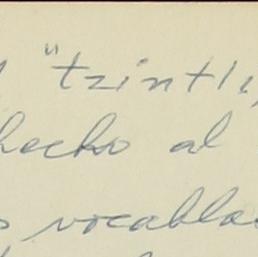 "tzintli,
hecho al
vocabla